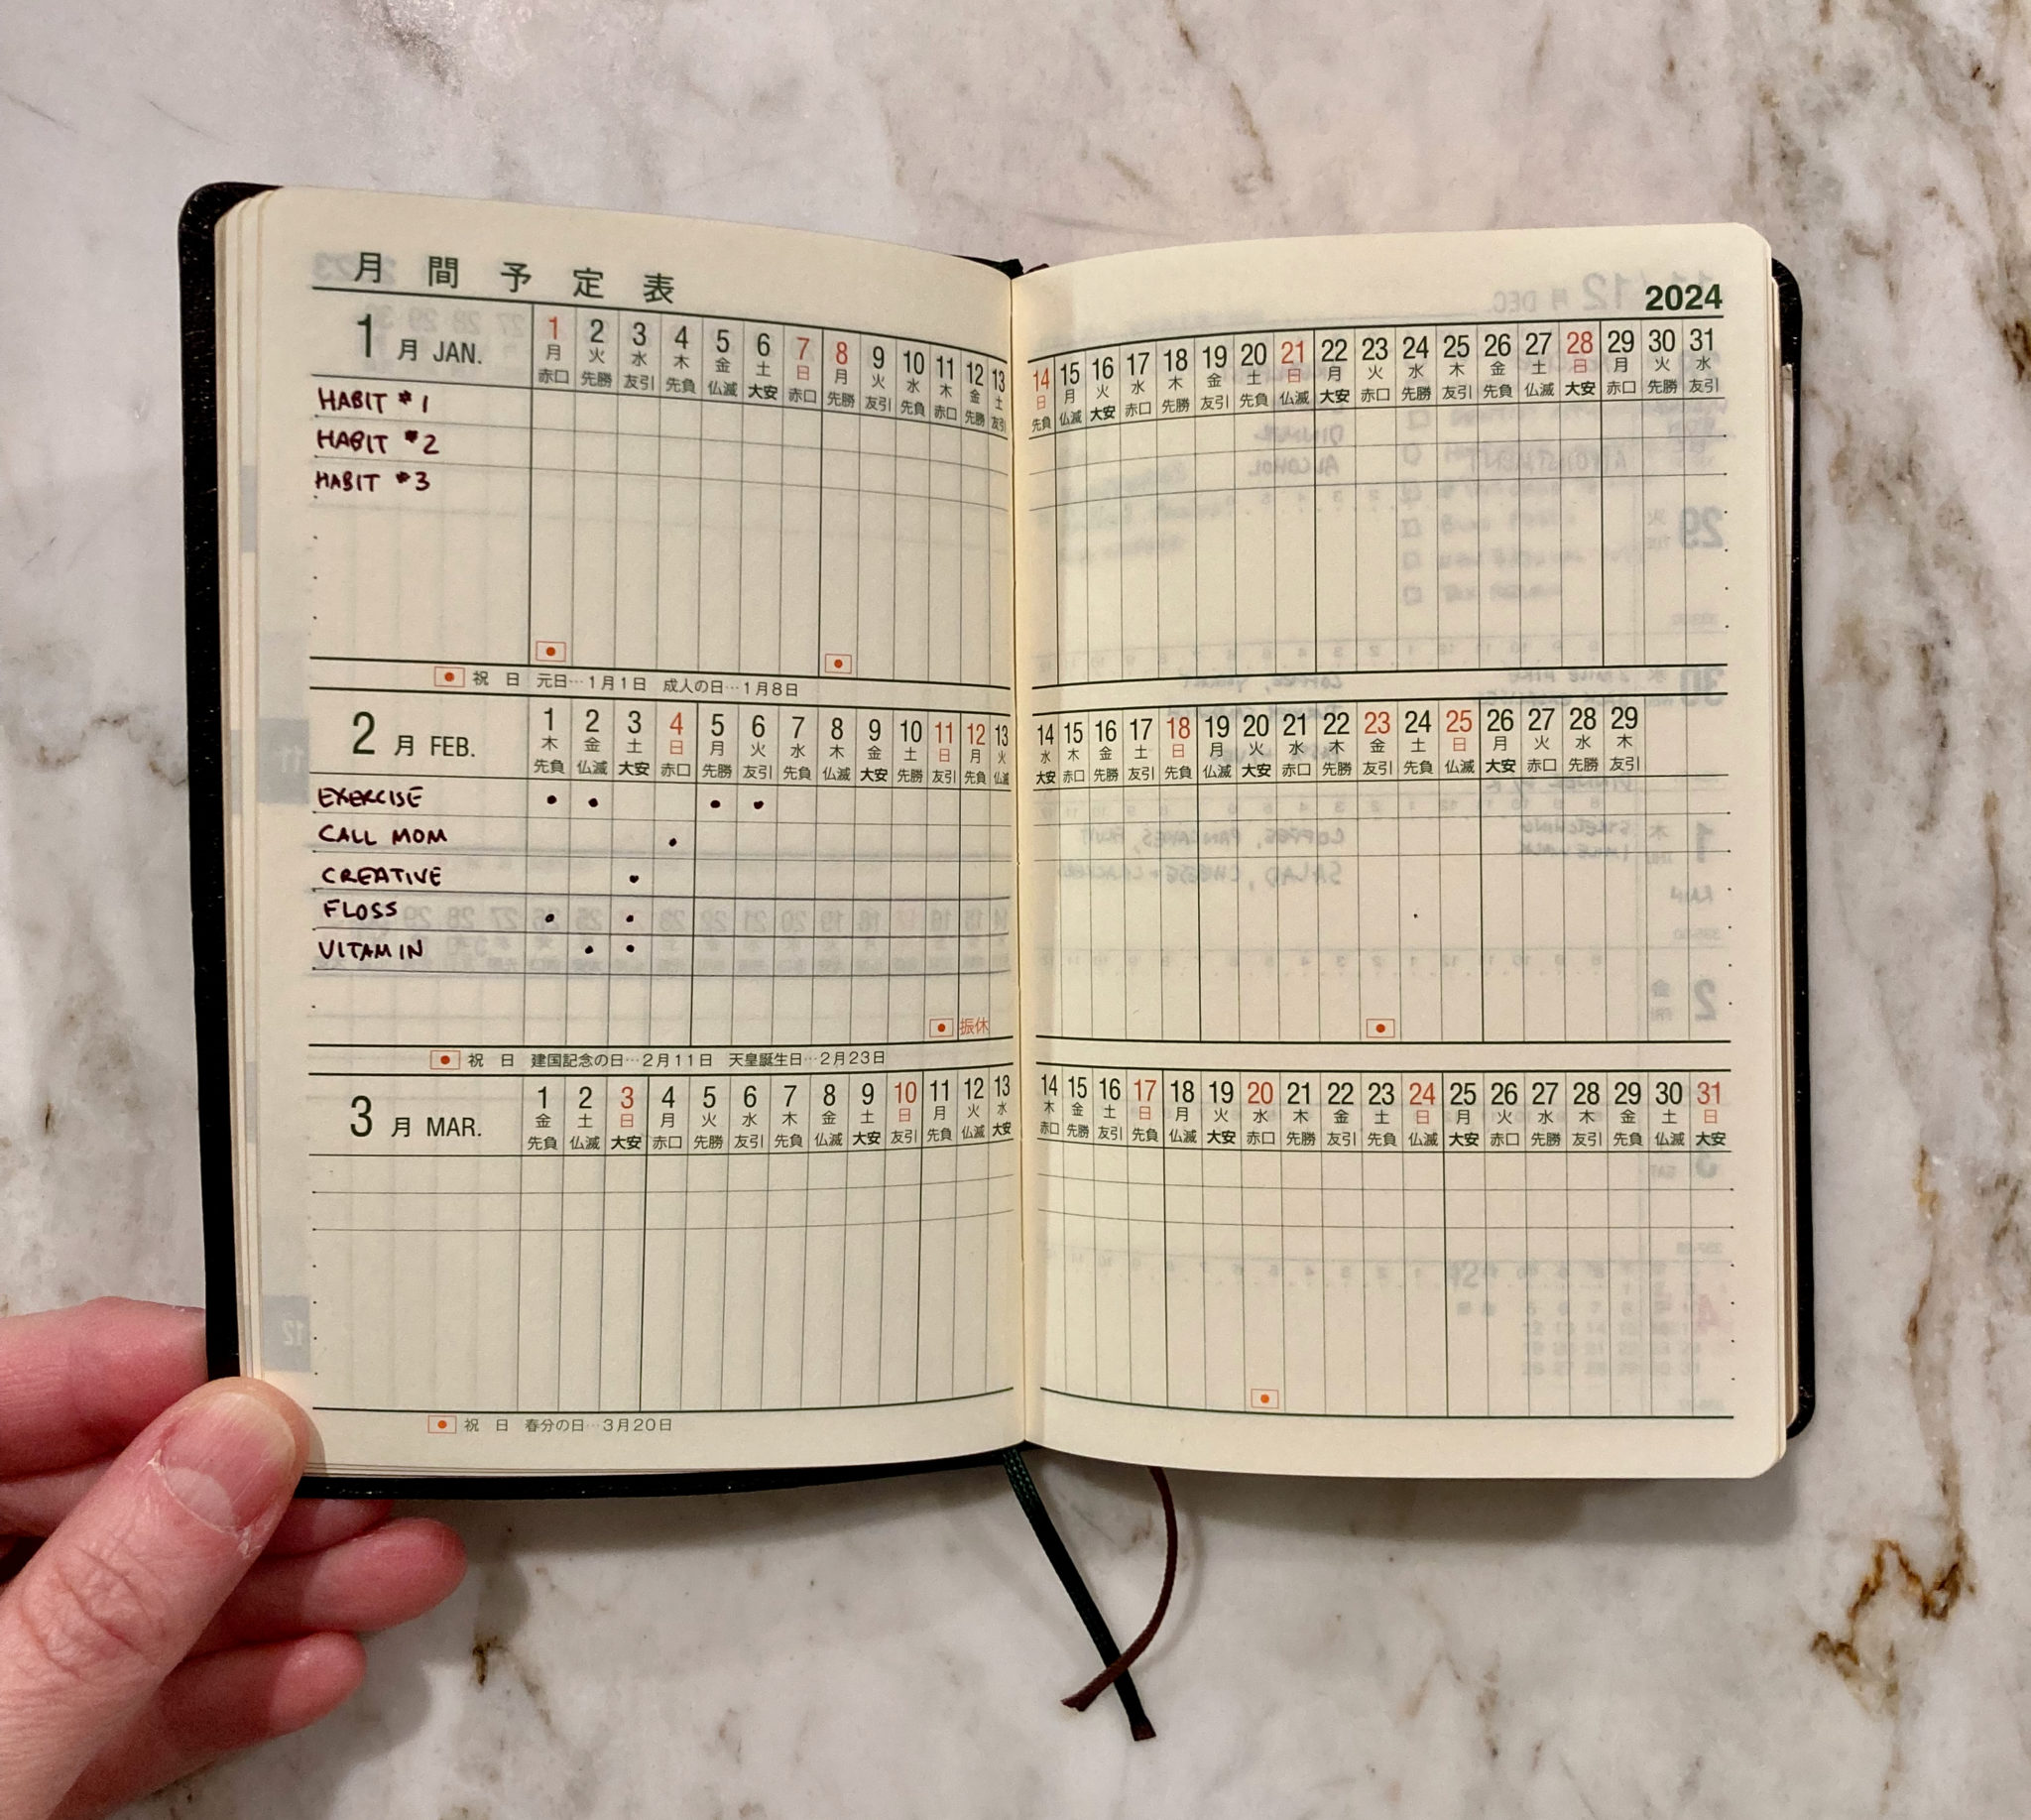 月間予定表
2024
1月 JAN. 1 2 3 4 5 6 7 8 9 10 11 12 13 14 15 16 17 18 19 20 21 22 23 24 25 26 27 28 29 30 31
月 火 水 木 金 土 日 月 火 水 木 金 土 日 月 火 水 木 金 土 日 月 火 水 木 金 土 日 月 火 水
赤口 先勝 友引 先負 仏滅 大安 赤口 先勝 友引 先負 赤口 先勝 友引 先負 仏滅 大安 赤口 先勝 友引 先負 仏滅 大安 赤口 先勝 友引 先負 仏滅 大安 赤口 先勝 友引
HABIT #1
HABIT #2
HABIT #3
祝日 元日…1月1日 成人の日…1月8日
2月 FEB. 1 2 3 4 5 6 7 8 9 10 11 12 13 14 15 16 17 18 19 20 21 22 23 24 25 26 27 28 29
木 金 土 日 月 火 水 木 金 土 日 月 火 水 木 金 土 日 月 火 水 木 金 土 日 月 火 水 木
先負 仏滅 大安 赤口 先勝 友引 先負 仏滅 大安 先勝 友引 先負 仏滅 大安 赤口 先勝 友引 先負 仏滅 大安 赤口 先勝 友引 先負 仏滅 大安 赤口 先勝 友引
EXERCISE
CALL MOM
CREATIVE
FLOSS
VITAMIN
振休
祝日 建国記念の日…2月11日 天皇誕生日…2月23日
3月 MAR. 1 2 3 4 5 6 7 8 9 10 11 12 13 14 15 16 17 18 19 20 21 22 23 24 25 26 27 28 29 30 31
金 土 日 月 火 水 木 金 土 日 月 火 水 木 金 土 日 月 火 水 木 金 土 日 月 火 水 木 金 土 日
先負 仏滅 大安 赤口 先勝 友引 先負 仏滅 大安 友引 先負 仏滅 大安 赤口 先勝 友引 先負 仏滅 大安 赤口 先勝 友引 先負 仏滅 大安 赤口 先勝 友引 先負 仏滅 大安
祝日 春分の日…3月20日